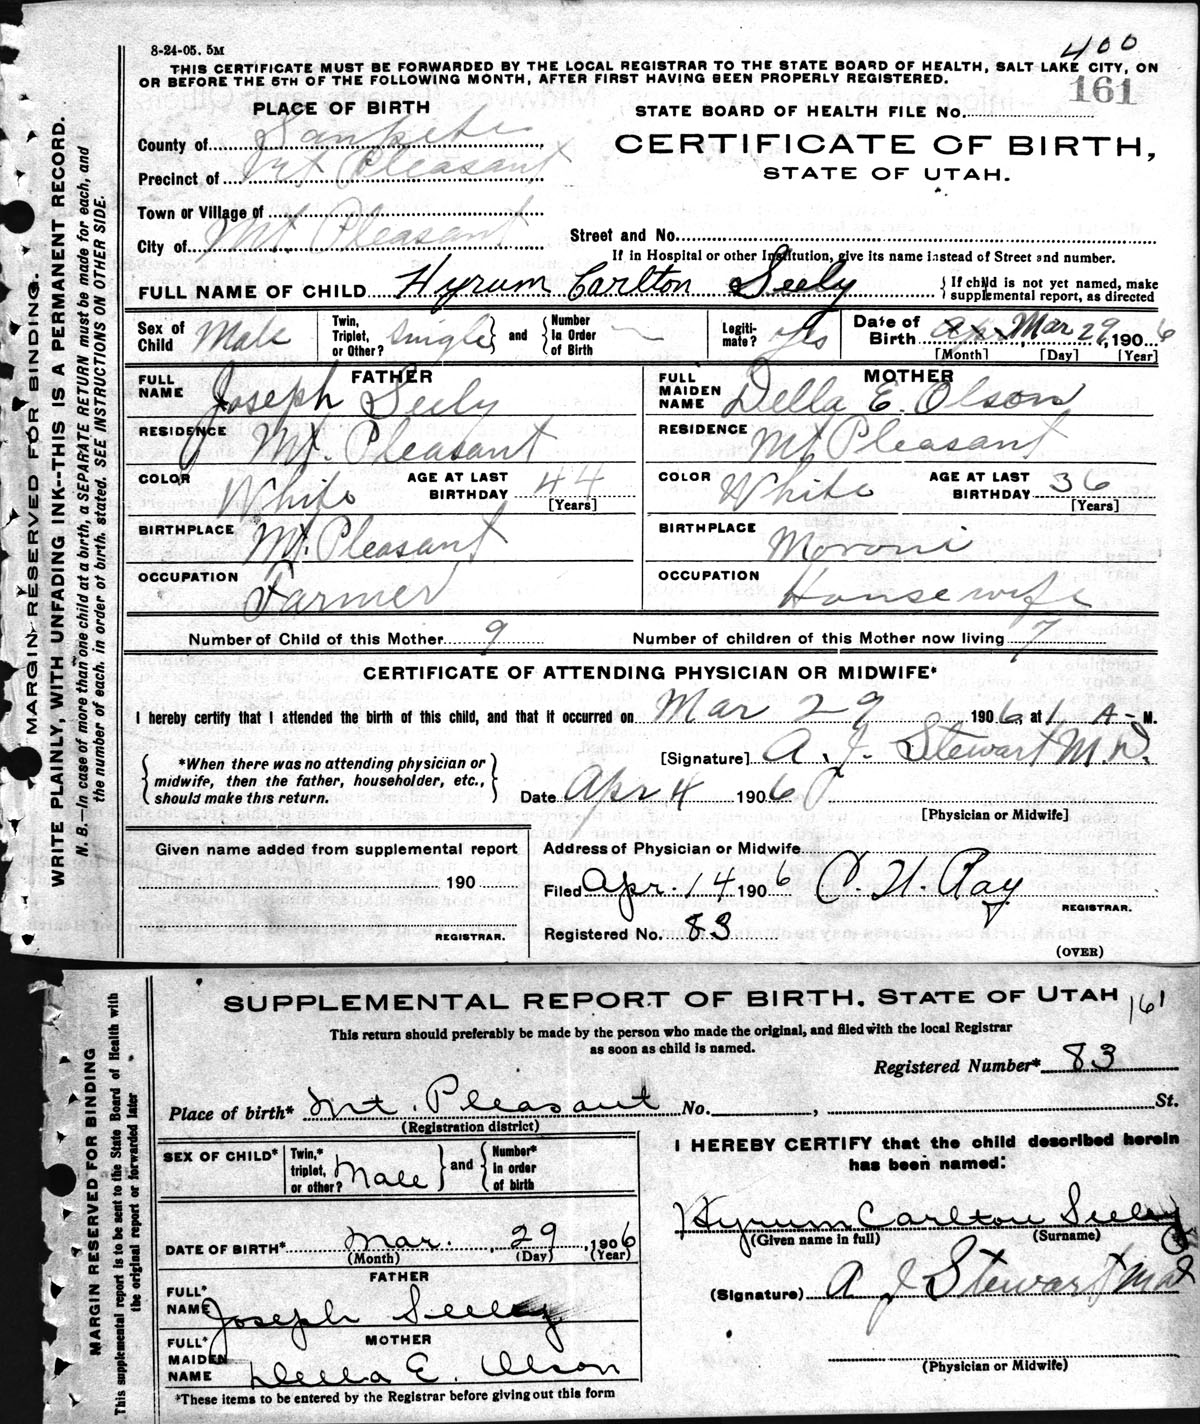 8-24-05. 5M
400
THIS CERTIFICATE MUST BE FORWARDED BY THE LOCAL REGISTRAR TO THE STATE BOARD OF HEALTH, SALT LAKE CITY, ON
OR BEFORE THE 5TH OF THE FOLLOWING MONTH, AFTER FIRST HAVING BEEN PROPERLY REGISTERED.
161
PLACE OF BIRTH
STATE BOARD OF HEALTH FILE No.
County of Sanpete
CERTIFICATE OF BIRTH,
STATE OF UTAH.
Precinct of Mt Pleasant
Town or Village of
City of Mt. Pleasant
Street and No.
If in Hospital or other Institution, give its name instead of Street and number.
FULL NAME OF CHILD Hyrum Carlton Seely
If child is not yet named, make supplemental report, as directed
Sex of Child Male
Twin, Triplet, or Other? Single and Number in Order of Birth
Legitimate? Yes
Date of Birth Mar 29, 1906
[Month] [Day] [Year]
FATHER
MOTHER
FULL NAME Joseph Seely
FULL MAIDEN NAME Della E. Olson
RESIDENCE Mt. Pleasant
RESIDENCE Mt Pleasant
COLOR White AGE AT LAST BIRTHDAY 44 [Years]
COLOR White AGE AT LAST BIRTHDAY 36 [Years]
BIRTHPLACE Mt. Pleasant
BIRTHPLACE Moroni
OCCUPATION Farmer
OCCUPATION Housewife
Number of Child of this Mother 9 Number of children of this Mother now living 7
CERTIFICATE OF ATTENDING PHYSICIAN OR MIDWIFE*
I hereby certify that I attended the birth of this child, and that it occurred on Mar 29 1906, at 1 A-M.
*When there was no attending physician or
midwife, then the father, householder, etc.,
should make this return.
[Signature] A. J. Stewart M.D.
Date Apr 4 1906
[Physician or Midwife]
Given name added from supplemental report
190
REGISTRAR.
Address of Physician or Midwife
Filed Apr. 14 1906 C. N. Ray
REGISTRAR.
Registered No. 83
(OVER)
MARGIN RESERVED FOR BINDING.
WRITE PLAINLY, WITH UNFADING INK--THIS IS A PERMANENT RECORD.
N. B.—In case of more than one child at a birth, a SEPARATE RETURN must be made for each, and
the number of each, in order of birth, stated. SEE INSTRUCTIONS ON OTHER SIDE.
SUPPLEMENTAL REPORT OF BIRTH. STATE OF UTAH 161
This return should preferably be made by the person who made the original, and filed with the local Registrar
as soon as child is named.
Registered Number* 83
Place of birth* Mt. Pleasant No. , St.
(Registration district)
SEX OF CHILD*
Twin,* triplet, or other? Male and Number* in order of birth
I HEREBY CERTIFY that the child described herein
has been named:
Hyrum Carlton Seeley
(Given name in full) (Surname)
DATE OF BIRTH* Mar. , 29 , 1906
(Month) (Day) (Year)
FATHER
FULL* NAME Joseph Seeley
(Signature) A J Stewart
MOTHER
FULL* MAIDEN NAME Della E. Olson
(Physician or Midwife)
*These items to be entered by the Registrar before giving out this form
MARGIN RESERVED FOR BINDING
This supplemental report is to be sent to the State Board of Health with
the original report or forwarded later